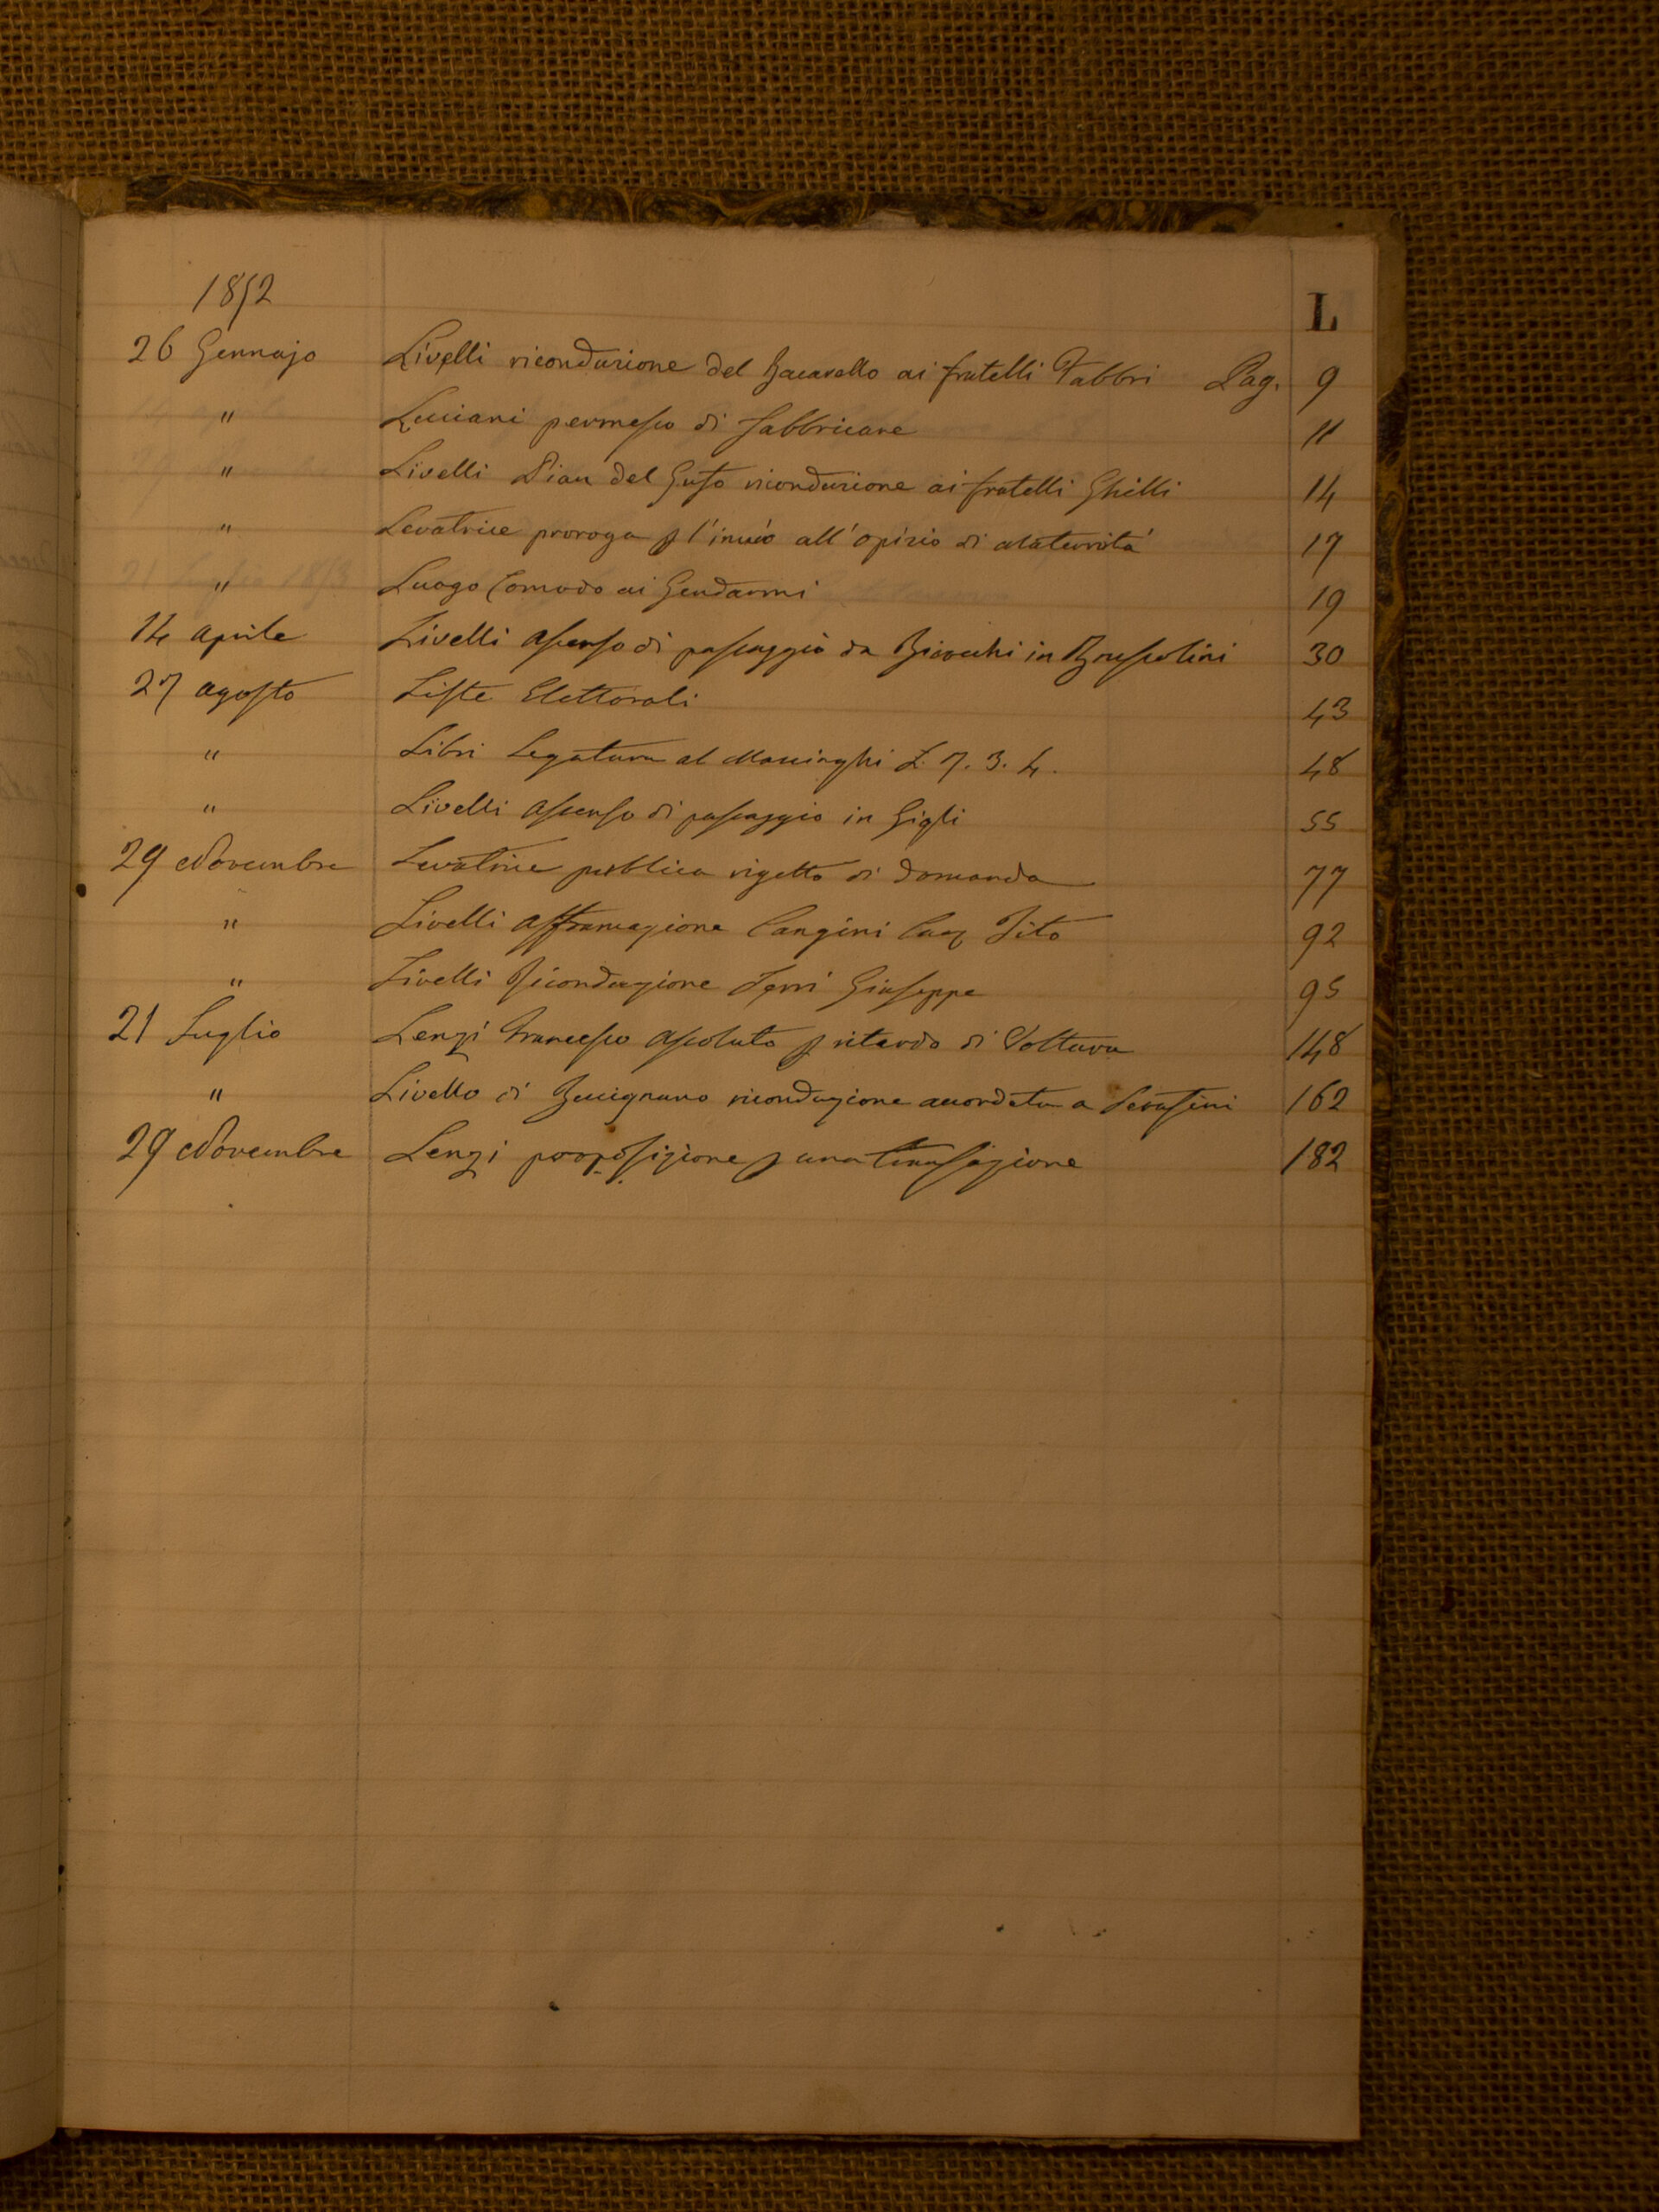 1852
L
26 Gennajo Livelli riconduzione del ai fratelli Fabbri Pag. 9
" Luciani permesso di fabbricare 11
" Livelli Pian del riconduzione ai fratelli Ghilli 14
" Levatrice proroga p l'invio all'Opizio di Maternità 17
" Luogo Comodo ai Gendarmi 19
14 Aprile Livelli Assenso di passaggio da in Bruscolini 30
27 Agosto Liste Elettorali 43
" Libri Legatura al L. 7. 3. 4. 48
" Livelli Assenso di passaggio in Gigli 55
29 Novembre Levatrice pubblica rigetto di domanda 77
" Livelli Affrancazione Cangini Tito 92
" Livelli Riconduzione Giuseppe 95
21 Luglio Lenzi Francesco Assoluto p ritardo di Voltura 148
" Livello di riconduzione accordata a 162
29 Novembre Lenzi proposizione p una transazione 182